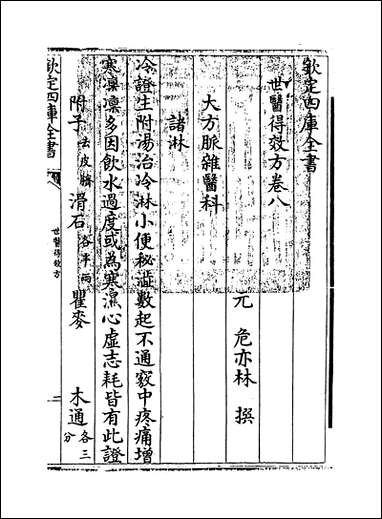 欽定四庫全書
世醫得效方卷八
元 危亦林 撰
大方脈雜醫科
諸淋
冷證生附湯治冷淋小便秘澁數起不通竅中疼痛增
寒凛凛多因飲水過度或為寒濕心虛志耗皆有此證
附子去皮臍 滑石各半兩 瞿麥 木通各三分
欽定四庫全書
世醫得效方